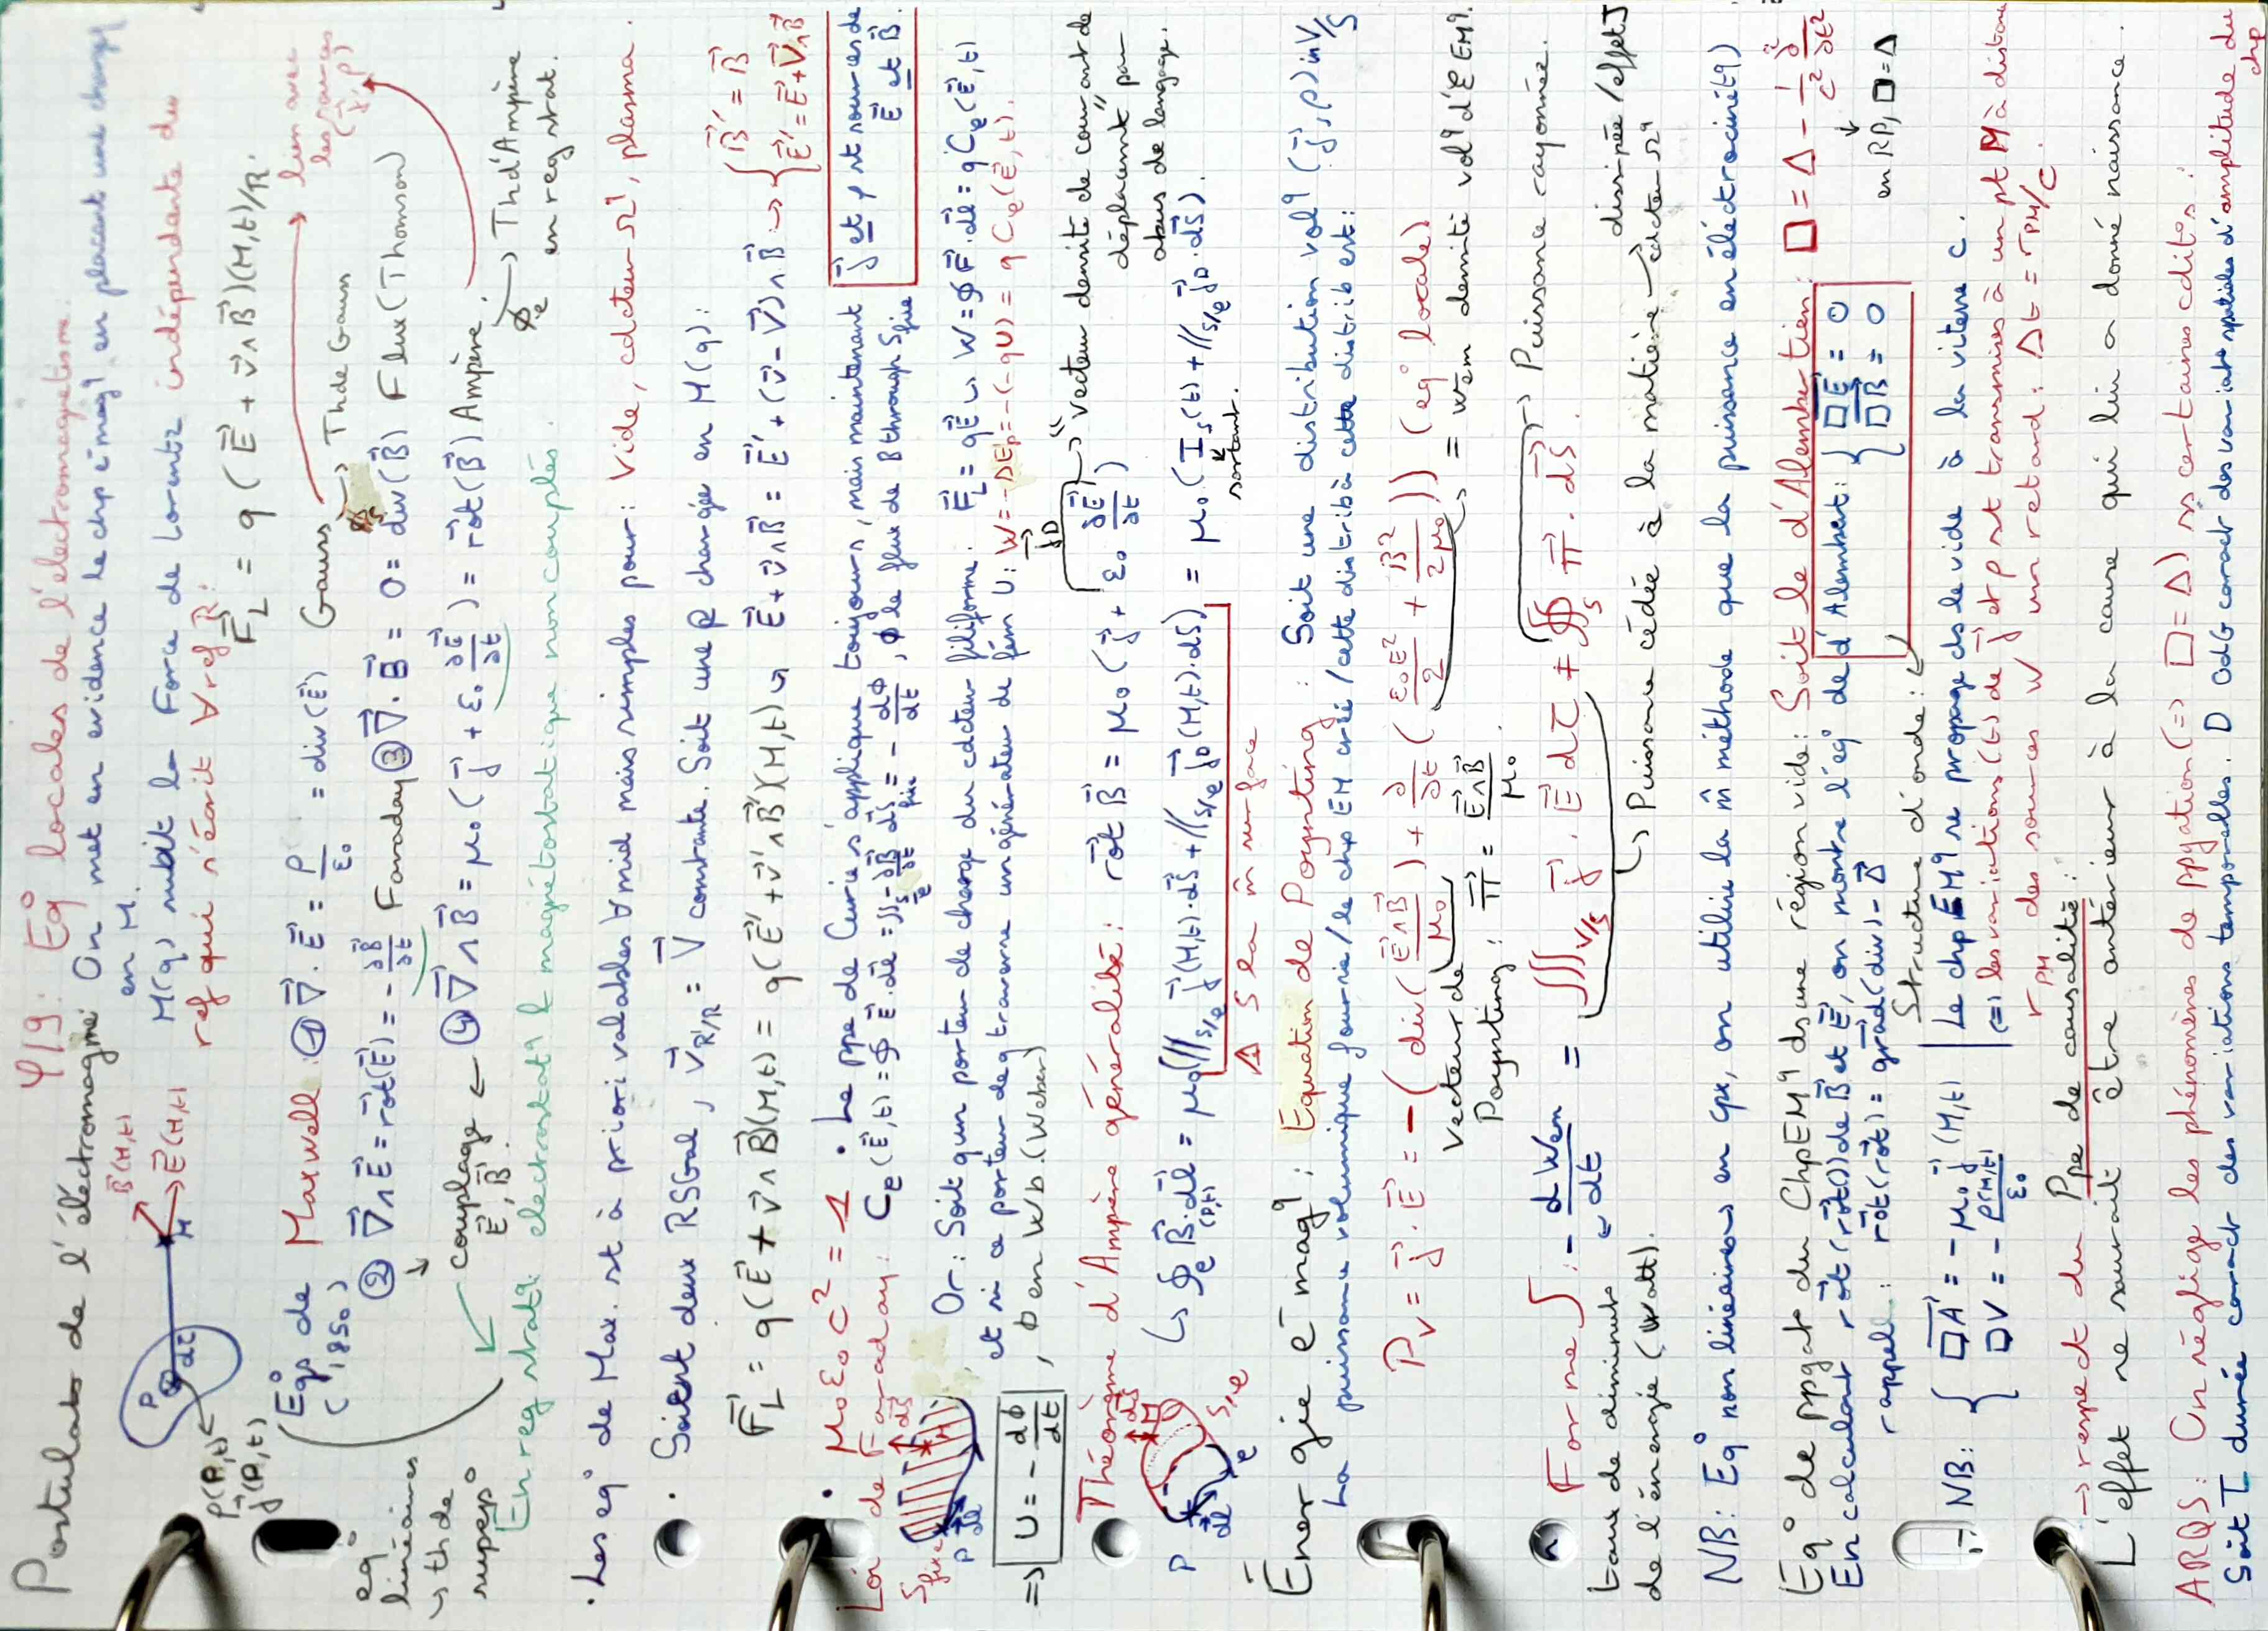 φ19: Eq° locales de l'électromagnétisme:
Postulats de l'électromagné: On met en evidence le chp émagq en plaçant une charge
en M.
B⃗(M,t)
E⃗(M,t)
M
P
dτ
ρ(P,t)
j⃗(P,t)
M(q) subit la Force de Lorentz indépendante du
ref qui s'écrit ∀ref R:
F⃗_L = q(E⃗ + v⃗∧B⃗)(M,t)/R.
Eq° de Maxwell:
(~1850)
① ∇⃗.E⃗ = ρ/ε₀ = div(E⃗) Gauss → Th de Gauss
lien avec les sources (j⃗,ρ)
② ∇⃗∧E⃗ = rot⃗(E⃗) = -∂B⃗/∂t Faraday ③ ∇⃗.B⃗ = 0 = div(B⃗) Flux (Thomson)
④ ∇⃗∧B⃗ = μ₀(j⃗ + ε₀ ∂E⃗/∂t) = rot⃗(B⃗) Ampère.
→ Th d'Ampère
en reg stat.
couplage
E⃗, B⃗
eq° linéaires
↪ th de
superp°
En reg statq: electrostatq & magnétostatique non couplés.
. Les eq° de Max. st à priori valables ∀mid mais simples pour: Vide, cdcteur Ωq, plasma.
. Soient deux RSGal, v⃗_R'/R = V⃗ constante. Soit une p chargée en M(q):
F⃗_L = q(E⃗ + v⃗∧B⃗)(M,t) = q(E⃗' + v⃗'∧B⃗')(M,t) ↪ E⃗ + v⃗∧B⃗ = E⃗' + (v⃗ - V⃗)∧B⃗' ↪ { B⃗' = B⃗
E⃗' = E⃗ + V⃗∧B⃗
. μ₀ε₀c² = 1 . Le ppe de Curie s'applique toujours, mais maintenant
j⃗ et ρ st sources de
E⃗ et B⃗.
Loi de Faraday: C_e(E⃗,t) = ∮_e E⃗.dl⃗ = ∬_S fixe -∂B⃗/∂t.dS⃗ = -dϕ/dt, ϕ le flux de B through S fixe
S fixe
dS⃗
P
dl⃗
Or: Soit q un porteur de charge du cdcteur filiforme. F⃗_L = qE⃗ ↪ W = ∮F⃗.dl⃗ = qC_e(E⃗,t)
et si ce porteur de q traverse un générateur de fém U: W = -ΔEp = -(-qU) = qC_e(E⃗,t).
⇒ U = -dϕ/dt , ϕ en Wb.(Weber)
Théorème d'Ampère généralisé: rot⃗B⃗ = μ₀(j⃗ + ε₀ ∂E⃗/∂t)
j⃗_D → "vecteur densité de courant de
déplacement" par
abus de langage.
dS⃗
P
dl⃗
e
S/e
↪ ∮_e B⃗.dl⃗ (P,t) = μ₀(∬_S/e j⃗(M,t).dS⃗ + ∬_S/e j⃗_D(M,t).dS⃗) = μ₀(I_S(t) + ∬_S/e j⃗_D.dS⃗).
sortant.
⚠ S la m̂ surface
Énergie émagq: Equation de Poynting: Soit une distribution volq (j⃗,ρ) in V/S
La puissance volumique fournie/le chp EM créé/cette distrib à cette distrib est:
P_V = j⃗.E⃗ = -(div(E⃗∧B⃗/μ₀) + ∂/∂t(ε₀E²/2 + B²/2μ₀)) (eq° locale)
Vecteur de
Poynting: Π⃗ = E⃗∧B⃗/μ₀.
→ = w_em densité volq d'ℰ EMq.
Forme ∫: -dW_em/dt = ∭_V/S j⃗.E⃗ dτ + ∯_S Π⃗.dS⃗.
→ Puissance rayonnée.
taux de diminut°
de l'énergie (Watt).
↪ Puissance cédée à la matière → dissipée/effet J
cdcteur Ωq
NB: Eq° non linéaires en cpx, on utilise la m̂ méthode que la puissance en électrocinétq)
Eq° de ppgat° du ChpEMq ds une région vide: Soit le d'Alembertien: □ = Δ - 1/c² ∂²/∂t²
En calculant rot⃗(rot⃗()) de B⃗ et E⃗, on montre l'eq° de d'Alembert: { □E⃗ = 0
□B⃗ = 0
en RP, □ = Δ
rappel: rot⃗(rot⃗) = grad⃗(div) - Δ⃗
Structure d'onde:
NB: { □A⃗ = -μ₀j⃗(M,t)
□V = -ρ(M,t)/ε₀
Le chpEMq se propage ds le vide à la vitesse c.
(⇒) les variations (t) de j⃗ et ρ st transmises à un pt M à distance
r_PM des sources w/ un retard: Δt = r_PM/c.
→ respect du Ppe de causalité:
L'effet ne saurait être antérieur à la cause qui lui a donné naissance.
ARQS: On néglige les phénomènes de ppgation (⇒ □ = Δ) ss certaines cdits:
Soit T durée caract des variations temporelles. D OdG caract des variat° spatiales d'amplitude du
chp